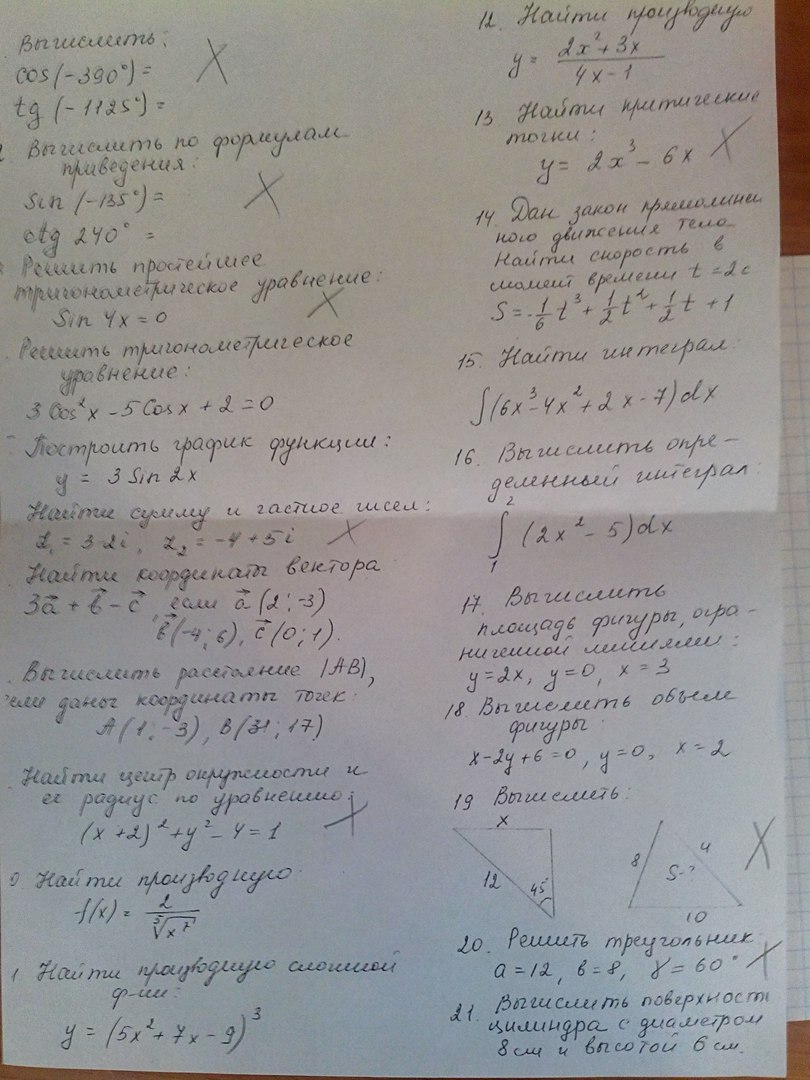 Вычислить:
cos(-390°)=
tg(-1125°)=
Вычислить по формулам
приведения:
Sin(-135°)=
ctg 240° =
Решить простейшее
тригонометрическое уравнение:
Sin 4x = 0
Решить тригонометрическое
уравнение:
3 Cos²x - 5 Cosx + 2 = 0
Построить график функции:
y = 3 Sin 2x
Найти сумму и частное чисел:
z₁ = 3-2i, z₂ = -4+5i
Найти координаты вектора
3a⃗ + b⃗ - c⃗, если a⃗(2;-3)
b⃗(-4;6), c⃗(0;1).
Вычислить расстояние |AB|,
если даны координаты точек:
A(1;-3), B(31;17)
Найти центр окружности и
её радиус по уравнению:
(x+2)² + y² - 4 = 1
Найти производную
f(x) = 2/⁵√x⁷
1 Найти производную сложной
ф-ии:
y = (5x² + 7x - 9)³
12. Найти производную
y = (2x² + 3x)/(4x - 1)
13 Найти критические
точки:
y = 2x³ - 6x
14. Дан закон прямолиней
ного движения тела
Найти скорость в
момент времени t = 2c
S = -1/6 t³ + 1/2 t² + 1/2 t + 1
15. Найти интеграл:
∫(6x³ - 4x² + 2x - 7)dx
16. Вычислить опре-
деленный интеграл:
∫₁² (2x² - 5)dx
17. Вычислить
площадь фигуры, огра-
ниченной линиями:
y = 2x, y = 0, x = 3
18. Вычислить объем
фигуры:
x - 2y + 6 = 0, y = 0, x = 2
19 Вычислить:
x
12
45°
8
S-?
4
10
20. Решить треугольник
a = 12, b = 8, γ = 60°
21. Вычислить поверхность
цилиндра с диаметром
8 см и высотой 6 см.